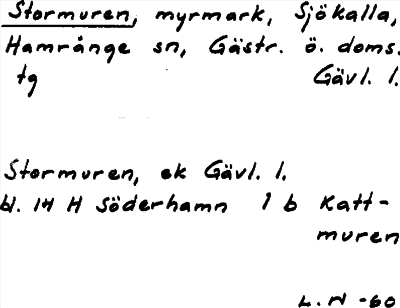 Stormuren, myrmark, Sjökalla,
Hamrånge sn, Gästr. ö. doms.
tg Gävl. l.
Stormuren, ek Gävl. l.
bl. 14 H Söderhamn 1 b Katt-
muren
L.N -60